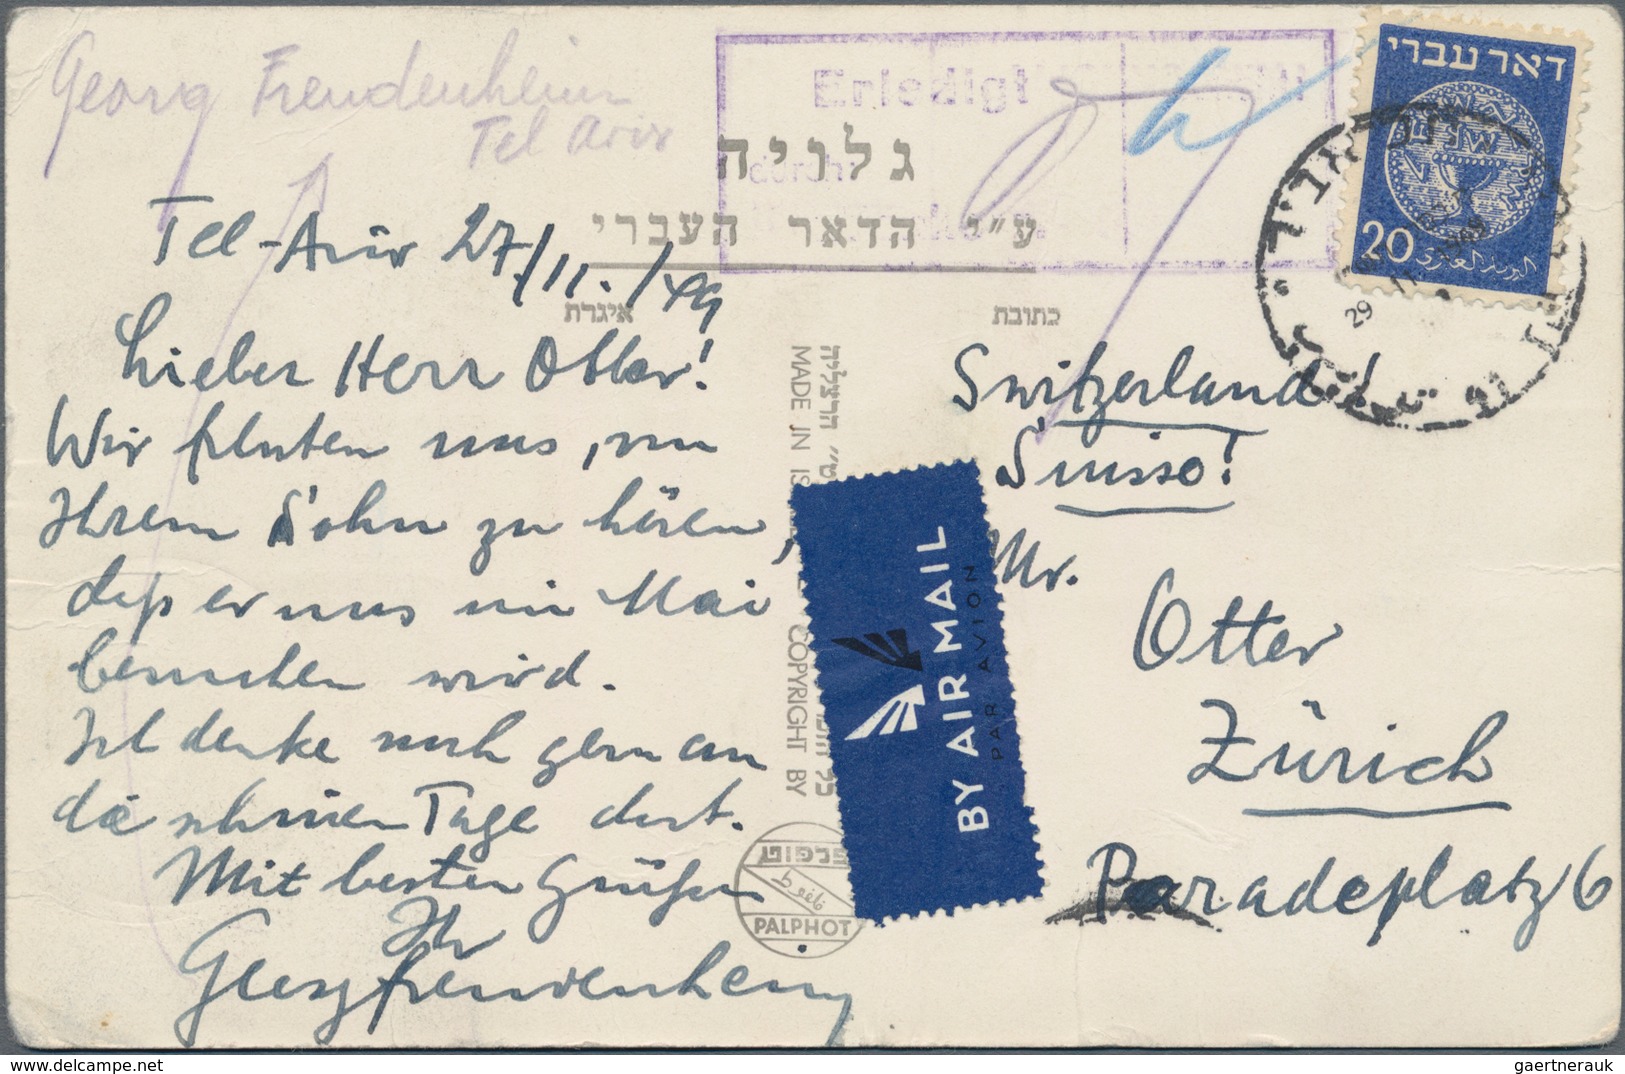 Georg Freudenheim
Tel Aviv
Erledigt
durch:
גלויה
ע"י הדאר העברי
דאר עברי
20
البريد العبري
29
Tel-Aviv 27/11./49
איגרת
כתובת
Lieber Herr Otter!
Wir freuten uns, von
Ihrem Sohn zu hören,
daß er uns im Mai
besuchen wird.
Ich denke noch gern an
die schönen Tage dort.
Mit besten Grüßen
Ihr
Georg Freudenheim
MADE IN IS
COPYRIGHT BY
הרצליה
פלפוט
PALPHOT
BY AIR MAIL
PAR AVION
Switzerland!
Suisse!
Mr.
Otter
Zürich
Paradeplatz 6
delcampe.net
gaertnerauk